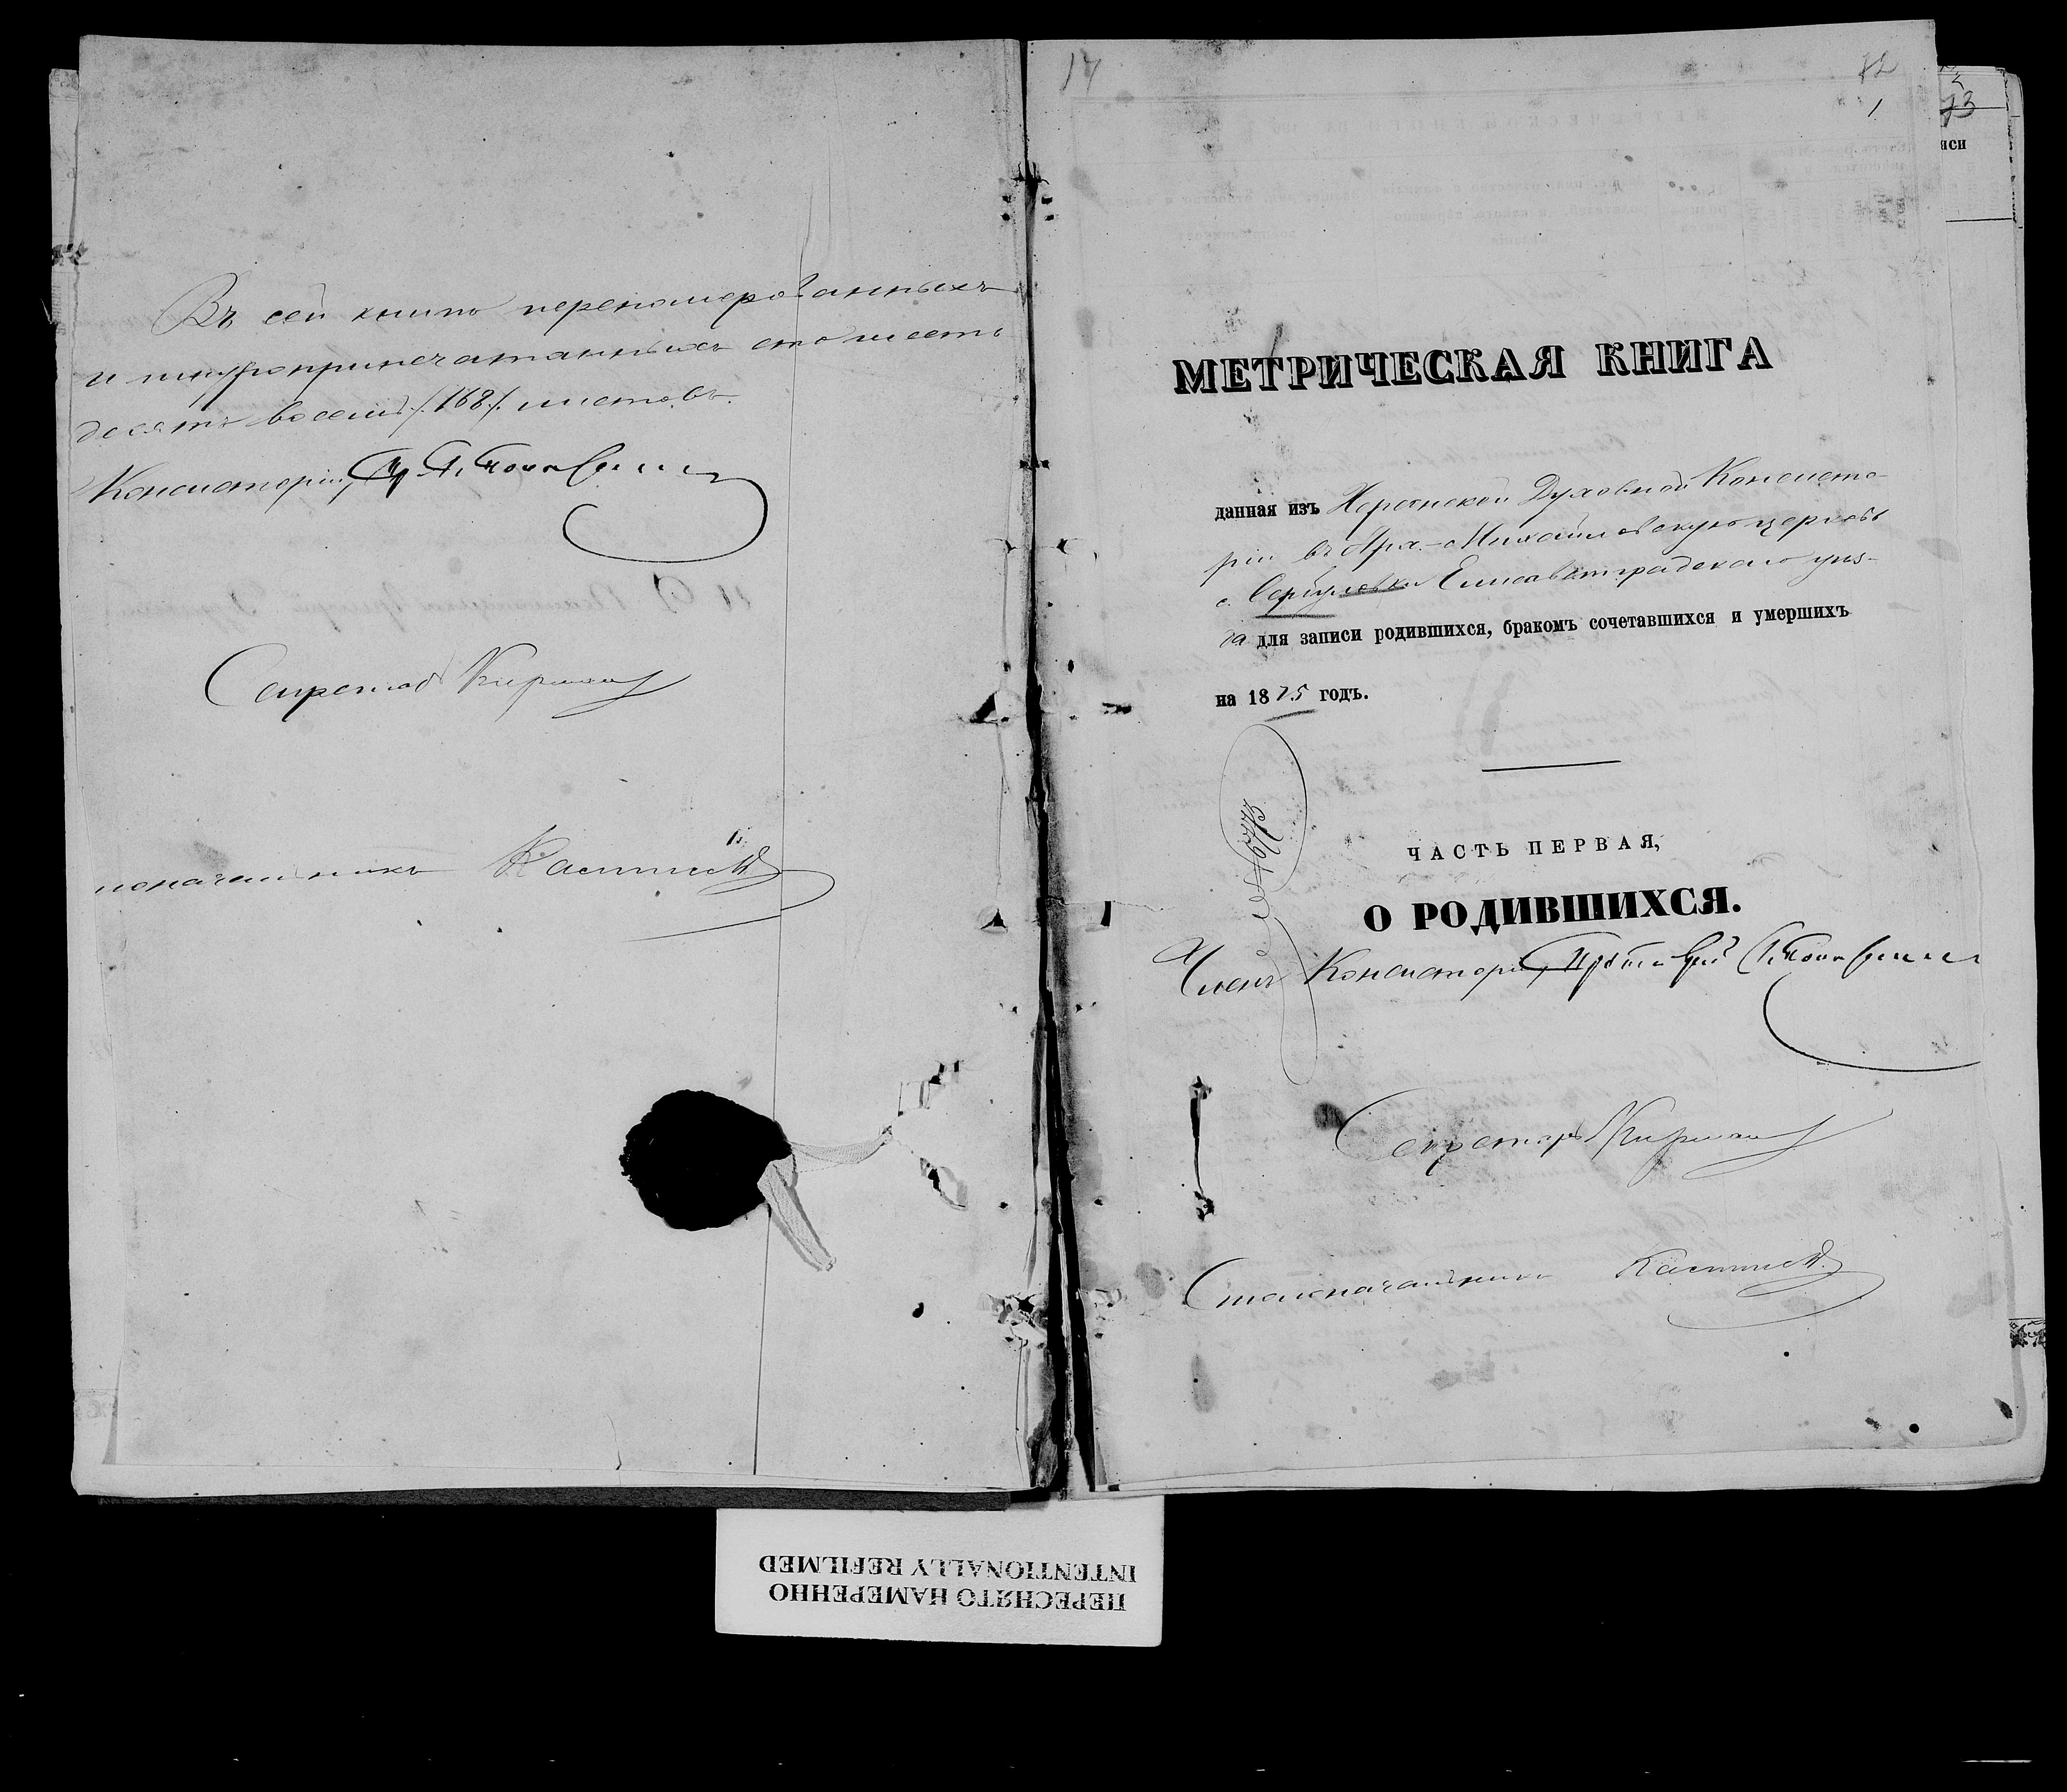 Въ сей книгѣ перенумерованныхъ
и шнуроприпечатанныхъ сто шесть
десятъ восемь /.168./. листовъ.
Консисторіи,
Секретарь
поначальникъ
17
72
1
73
иси
МЕТРИЧЕСКАЯ КНИГА
данная изъ Херсонской Духовной Консисто-
ріи въ Арх.-Михайловскую церковь
с. Елисаветградскаго уѣз-
да для записи родившихся, бракомъ сочетавшихся и умершихъ
на 1875 годъ.
ЧАСТЬ ПЕРВАЯ,
О РОДИВШИХСЯ.
Членъ Консисторіи, Протоіерей
Секретарь
Столоначальникъ
ПЕРЕСНЯТО НАМЕРЕННО
INTENTIONALLY REFILMED